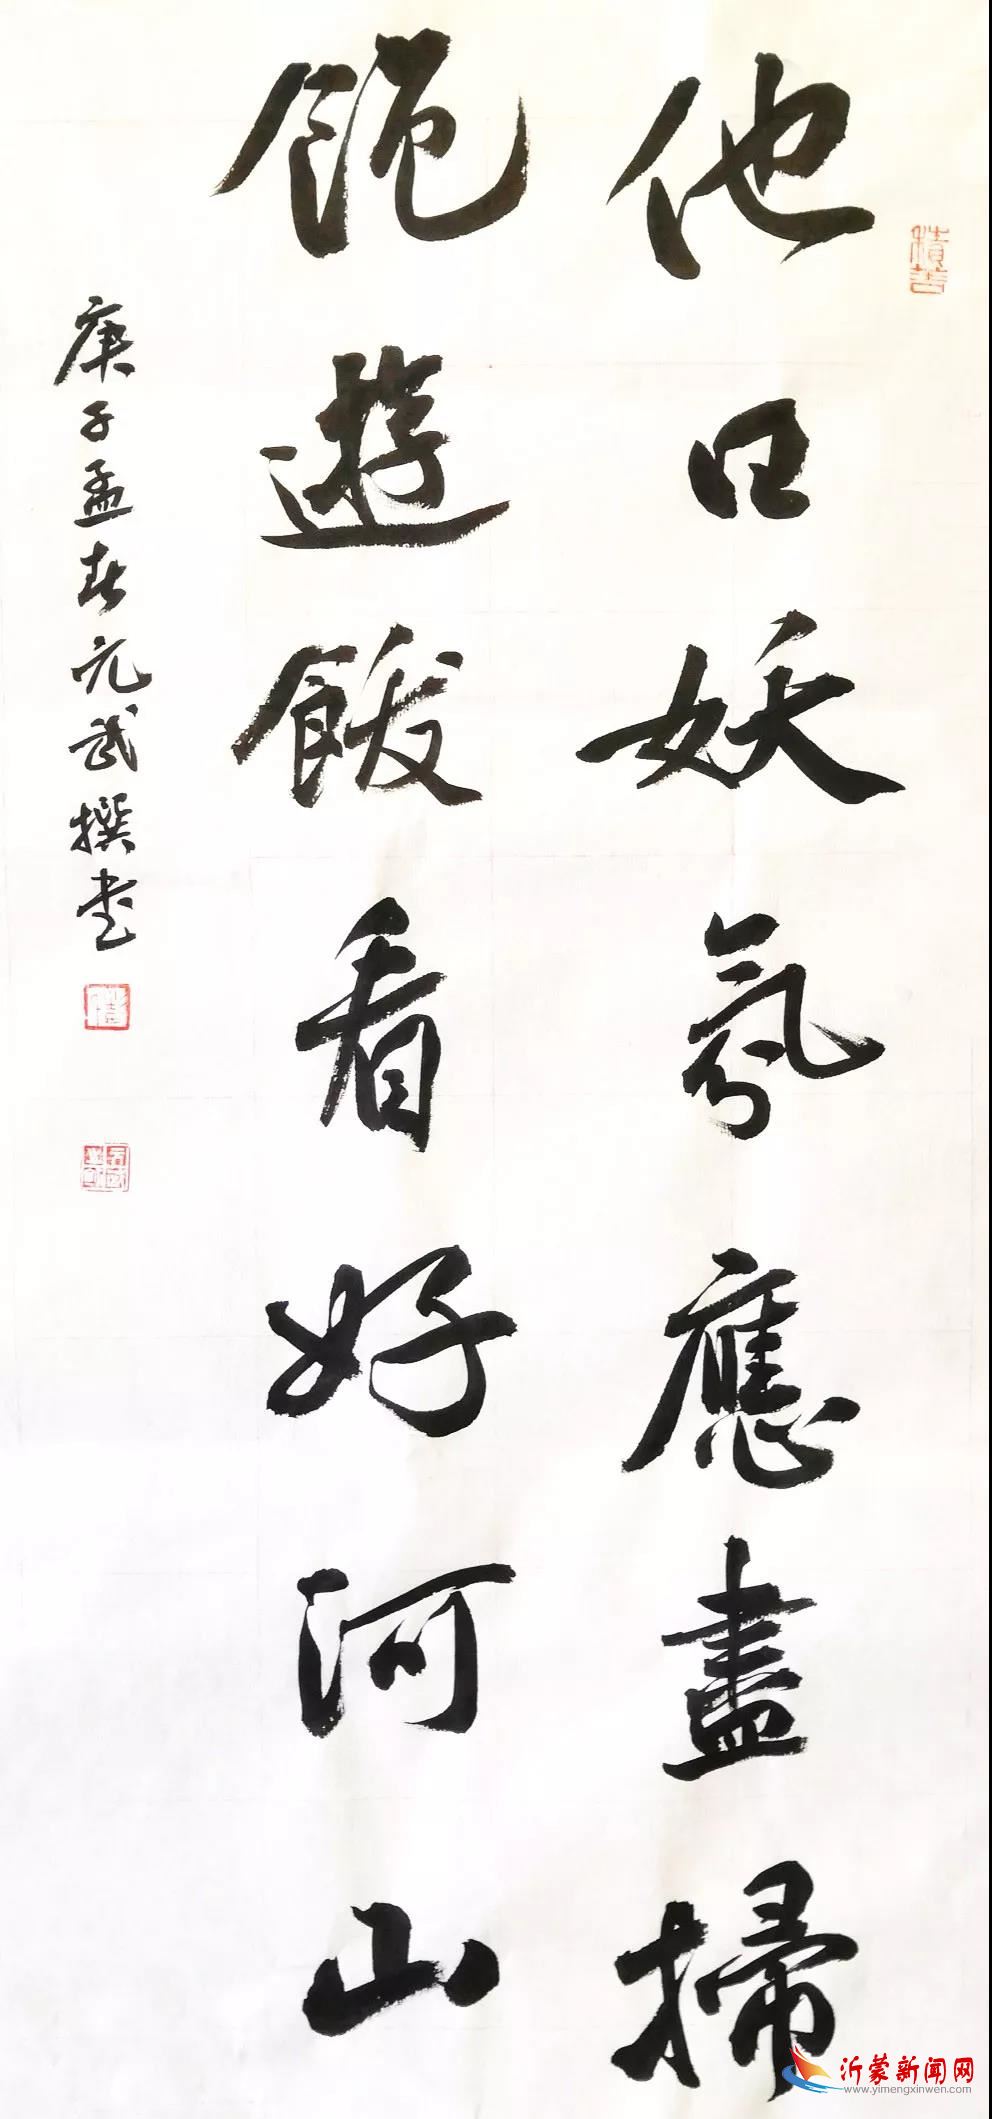 他日妖氛應盡掃
飽遊飫看好河山
庚子孟春元武撰书
積善
沂蒙新闻网
www.yimengxinwen.com